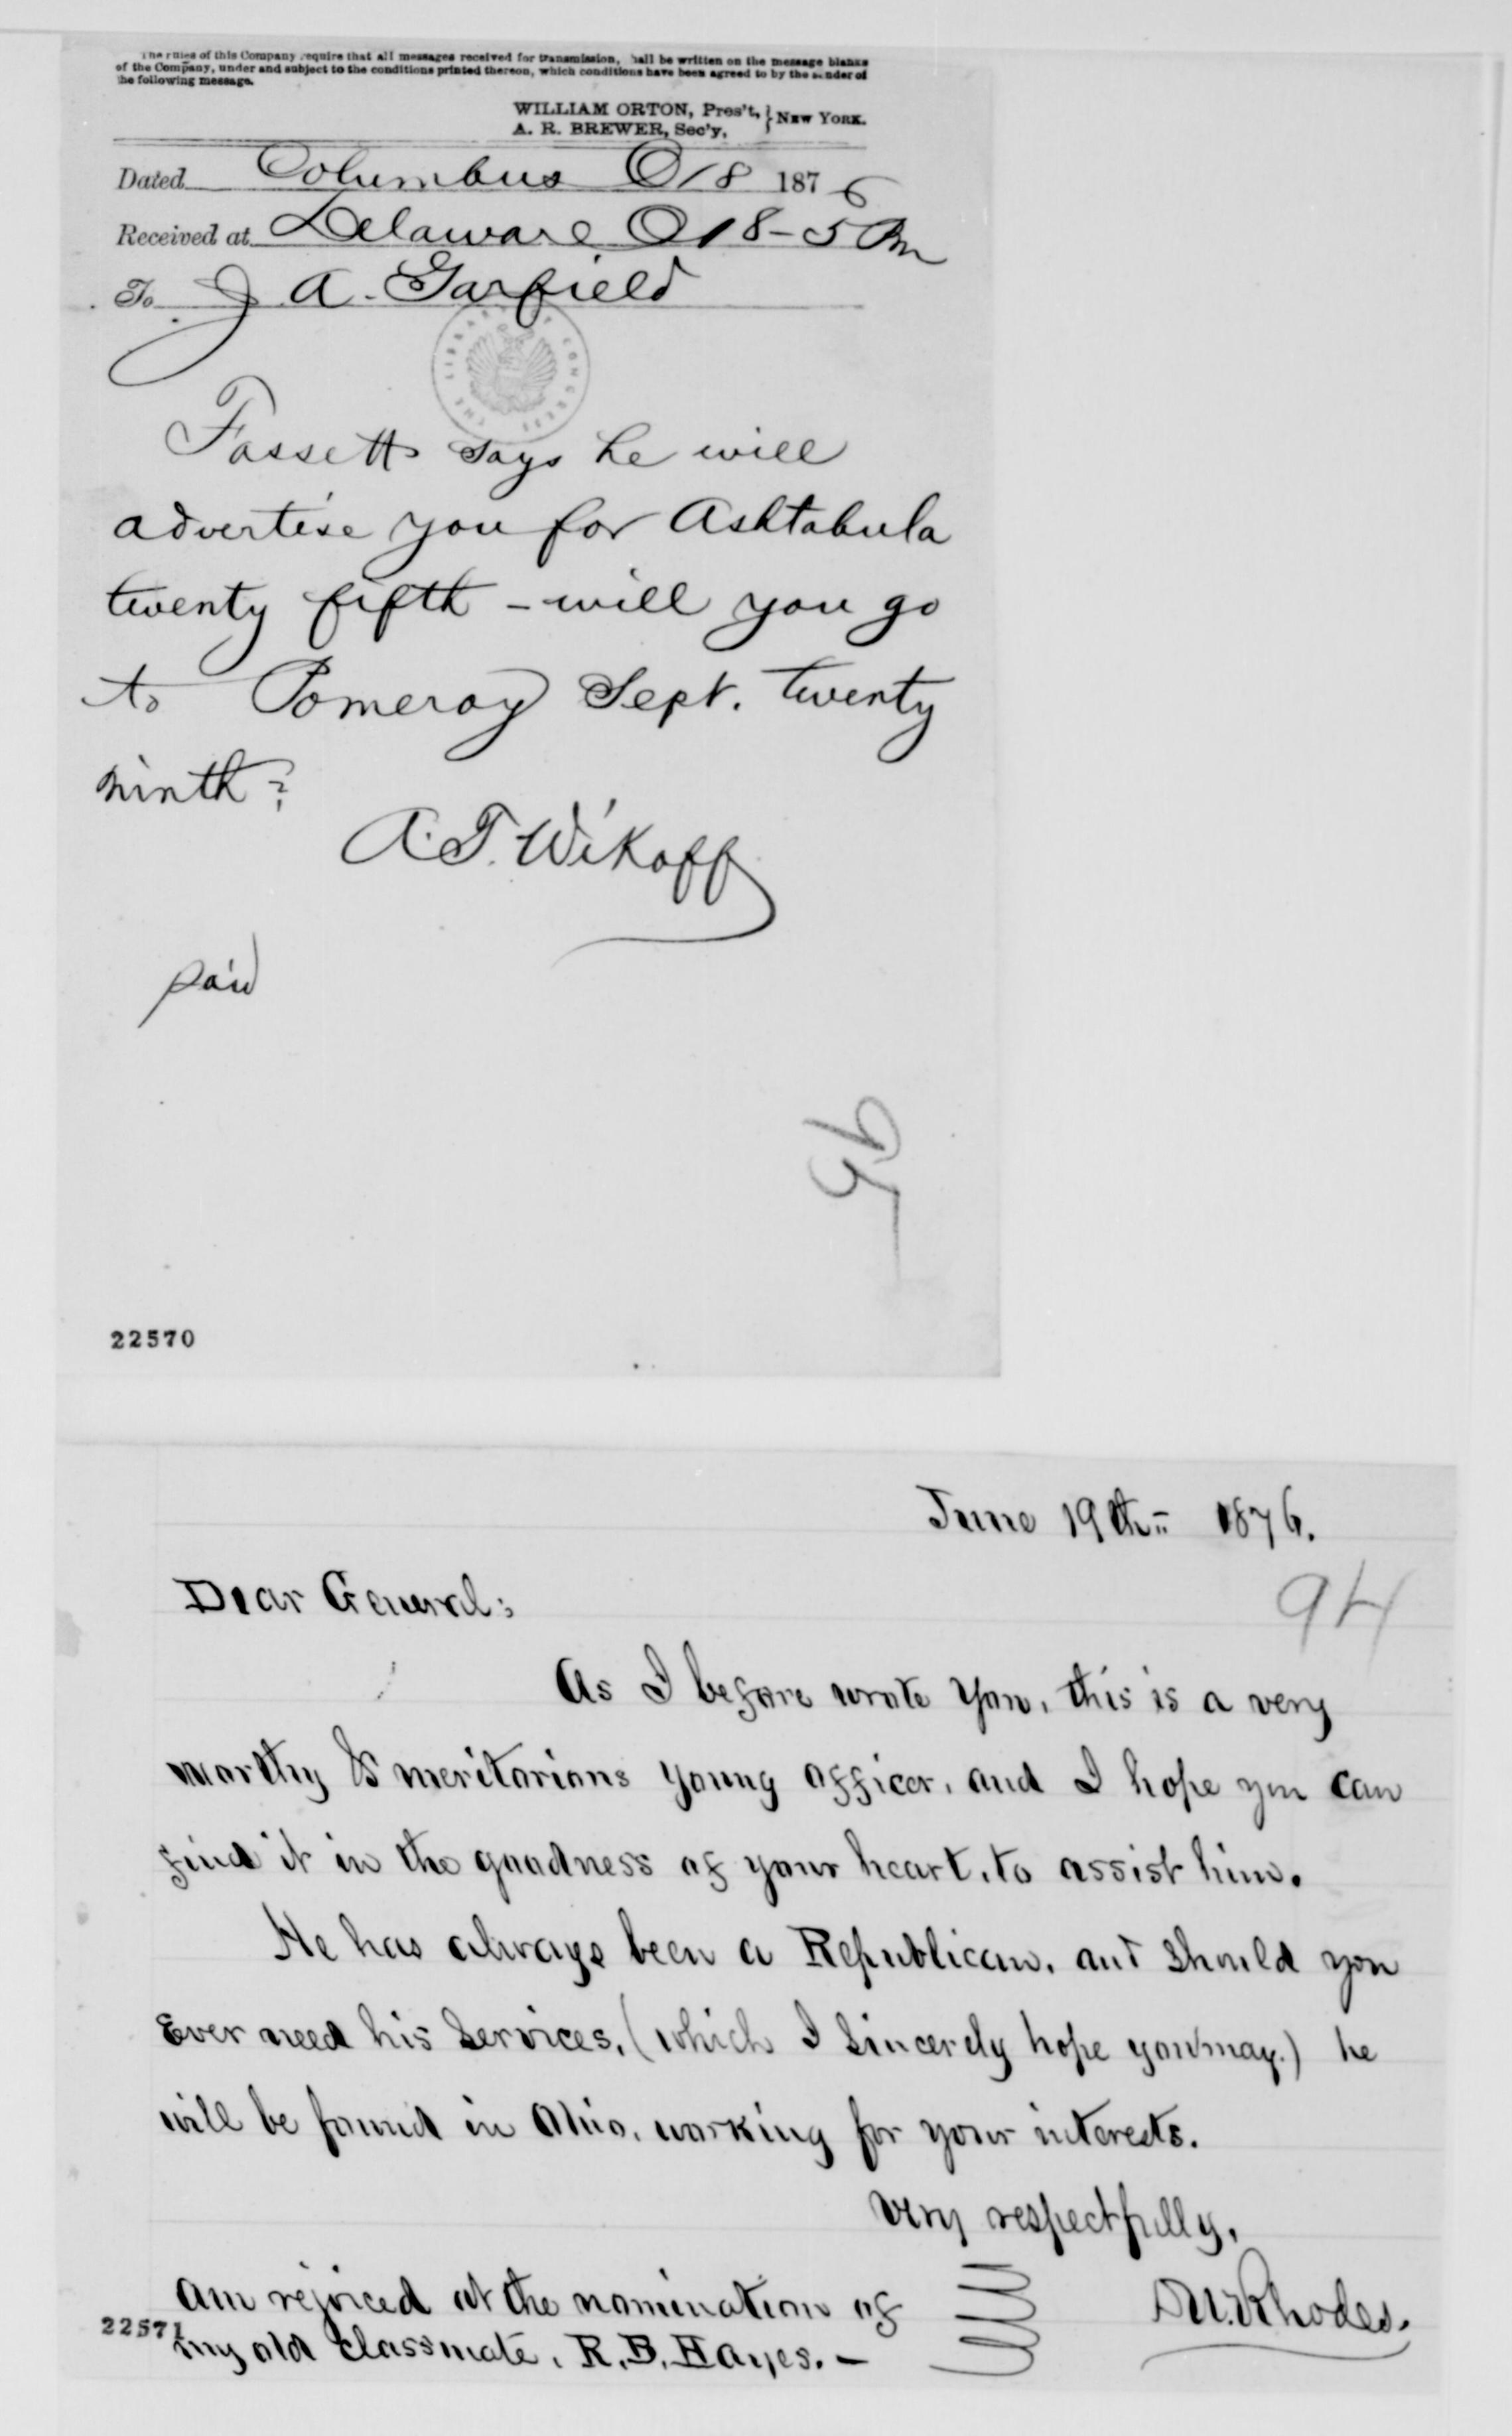 The rules of this Company require that all messages received for transmission, shall be written on the message blanks
of the Company, under and subject to the conditions printed thereon, which conditions have been agreed to by the sender of
the following message.
WILLIAM ORTON, Pres't,
A. R. BREWER, Sec'y, } NEW YORK.
Dated Columbus O 18 1876
Received at Delaware O 18-5 Pm
To J A. Garfield
THE LIBRARY OF CONGRESS
Fassett says he will
advertise you for Ashtabula
twenty fifth - will you go
to Pomeroy Sept. twenty
ninth?
A. T. Wikoff
paid
22570
June 19th = 1876.
Dear General:
94
As I before wrote you, this is a very
worthy & meritorious young officer, and I hope you can
find it in the goodness of your heart, to assist him.
He has always been a Republican, and should you
Ever need his services, (which I sincerely hope you may.) he
will be found in Ohio, working for your interests.
Very respectfully,
Rhodes.
Am rejoiced at the nomination of
my old classmate, R. B. Hayes. —
22571